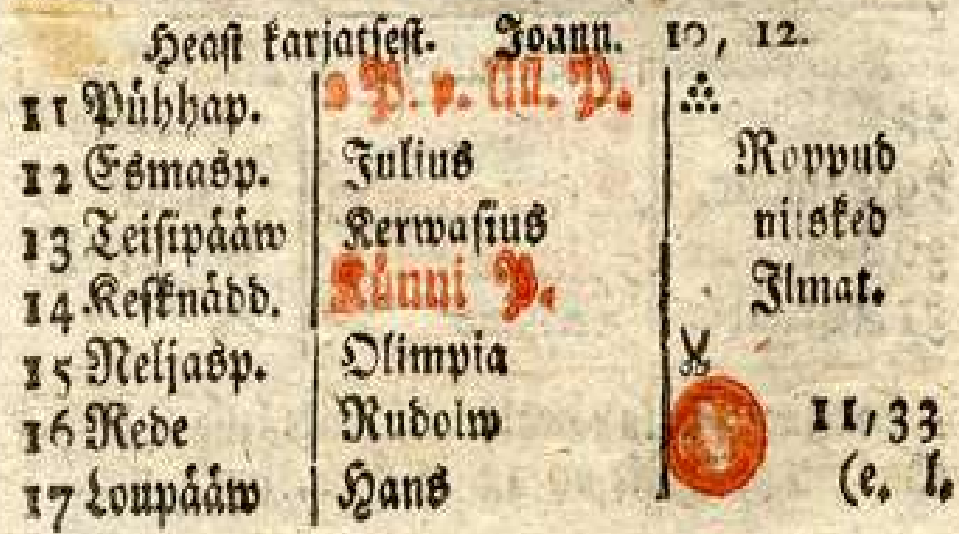 Heast karjatsest. Joann. 10, 12.
11 Pühhap. 2 P. p. Ull. P.
12 Esmasp. Julius Roppud
13 Teisipääw Kerwasius niisked
14 Kesknädd. Künni P. Ilmat.
15 Neljasp. Olimpia
16 Rede Rudolw 11, 33
17 Loupääw Hans (e. l.